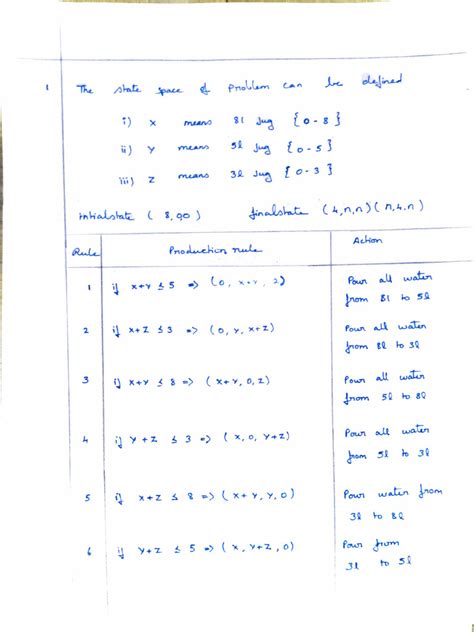 1 The state space of problem can be defined
i) x means 8l jug {0-8}
ii) y means 5l jug {0-5}
iii) z means 3l jug {0-3}
initialstate (8,00) finalstate (4,n,n)(n,4,n)
Rule Production rule Action
1 if x+y ≤ 5 => (0, x+y, z) Pour all water
from 8l to 5l
2 if x+z ≤ 3 => (0, y, x+z) Pour all water
from 8l to 3l
3 if x+y ≤ 8 => (x+y, 0, z) Pour all water
from 5l to 8l
4 if y+z ≤ 3 => (x, 0, y+z) Pour all water
from 5l to 3l
5 if x+z ≤ 8 => (x+y, y, 0) Pour water from
3l to 8l
6 if y+z ≤ 5 => (x, y+z, 0) Pour from
3l to 5l